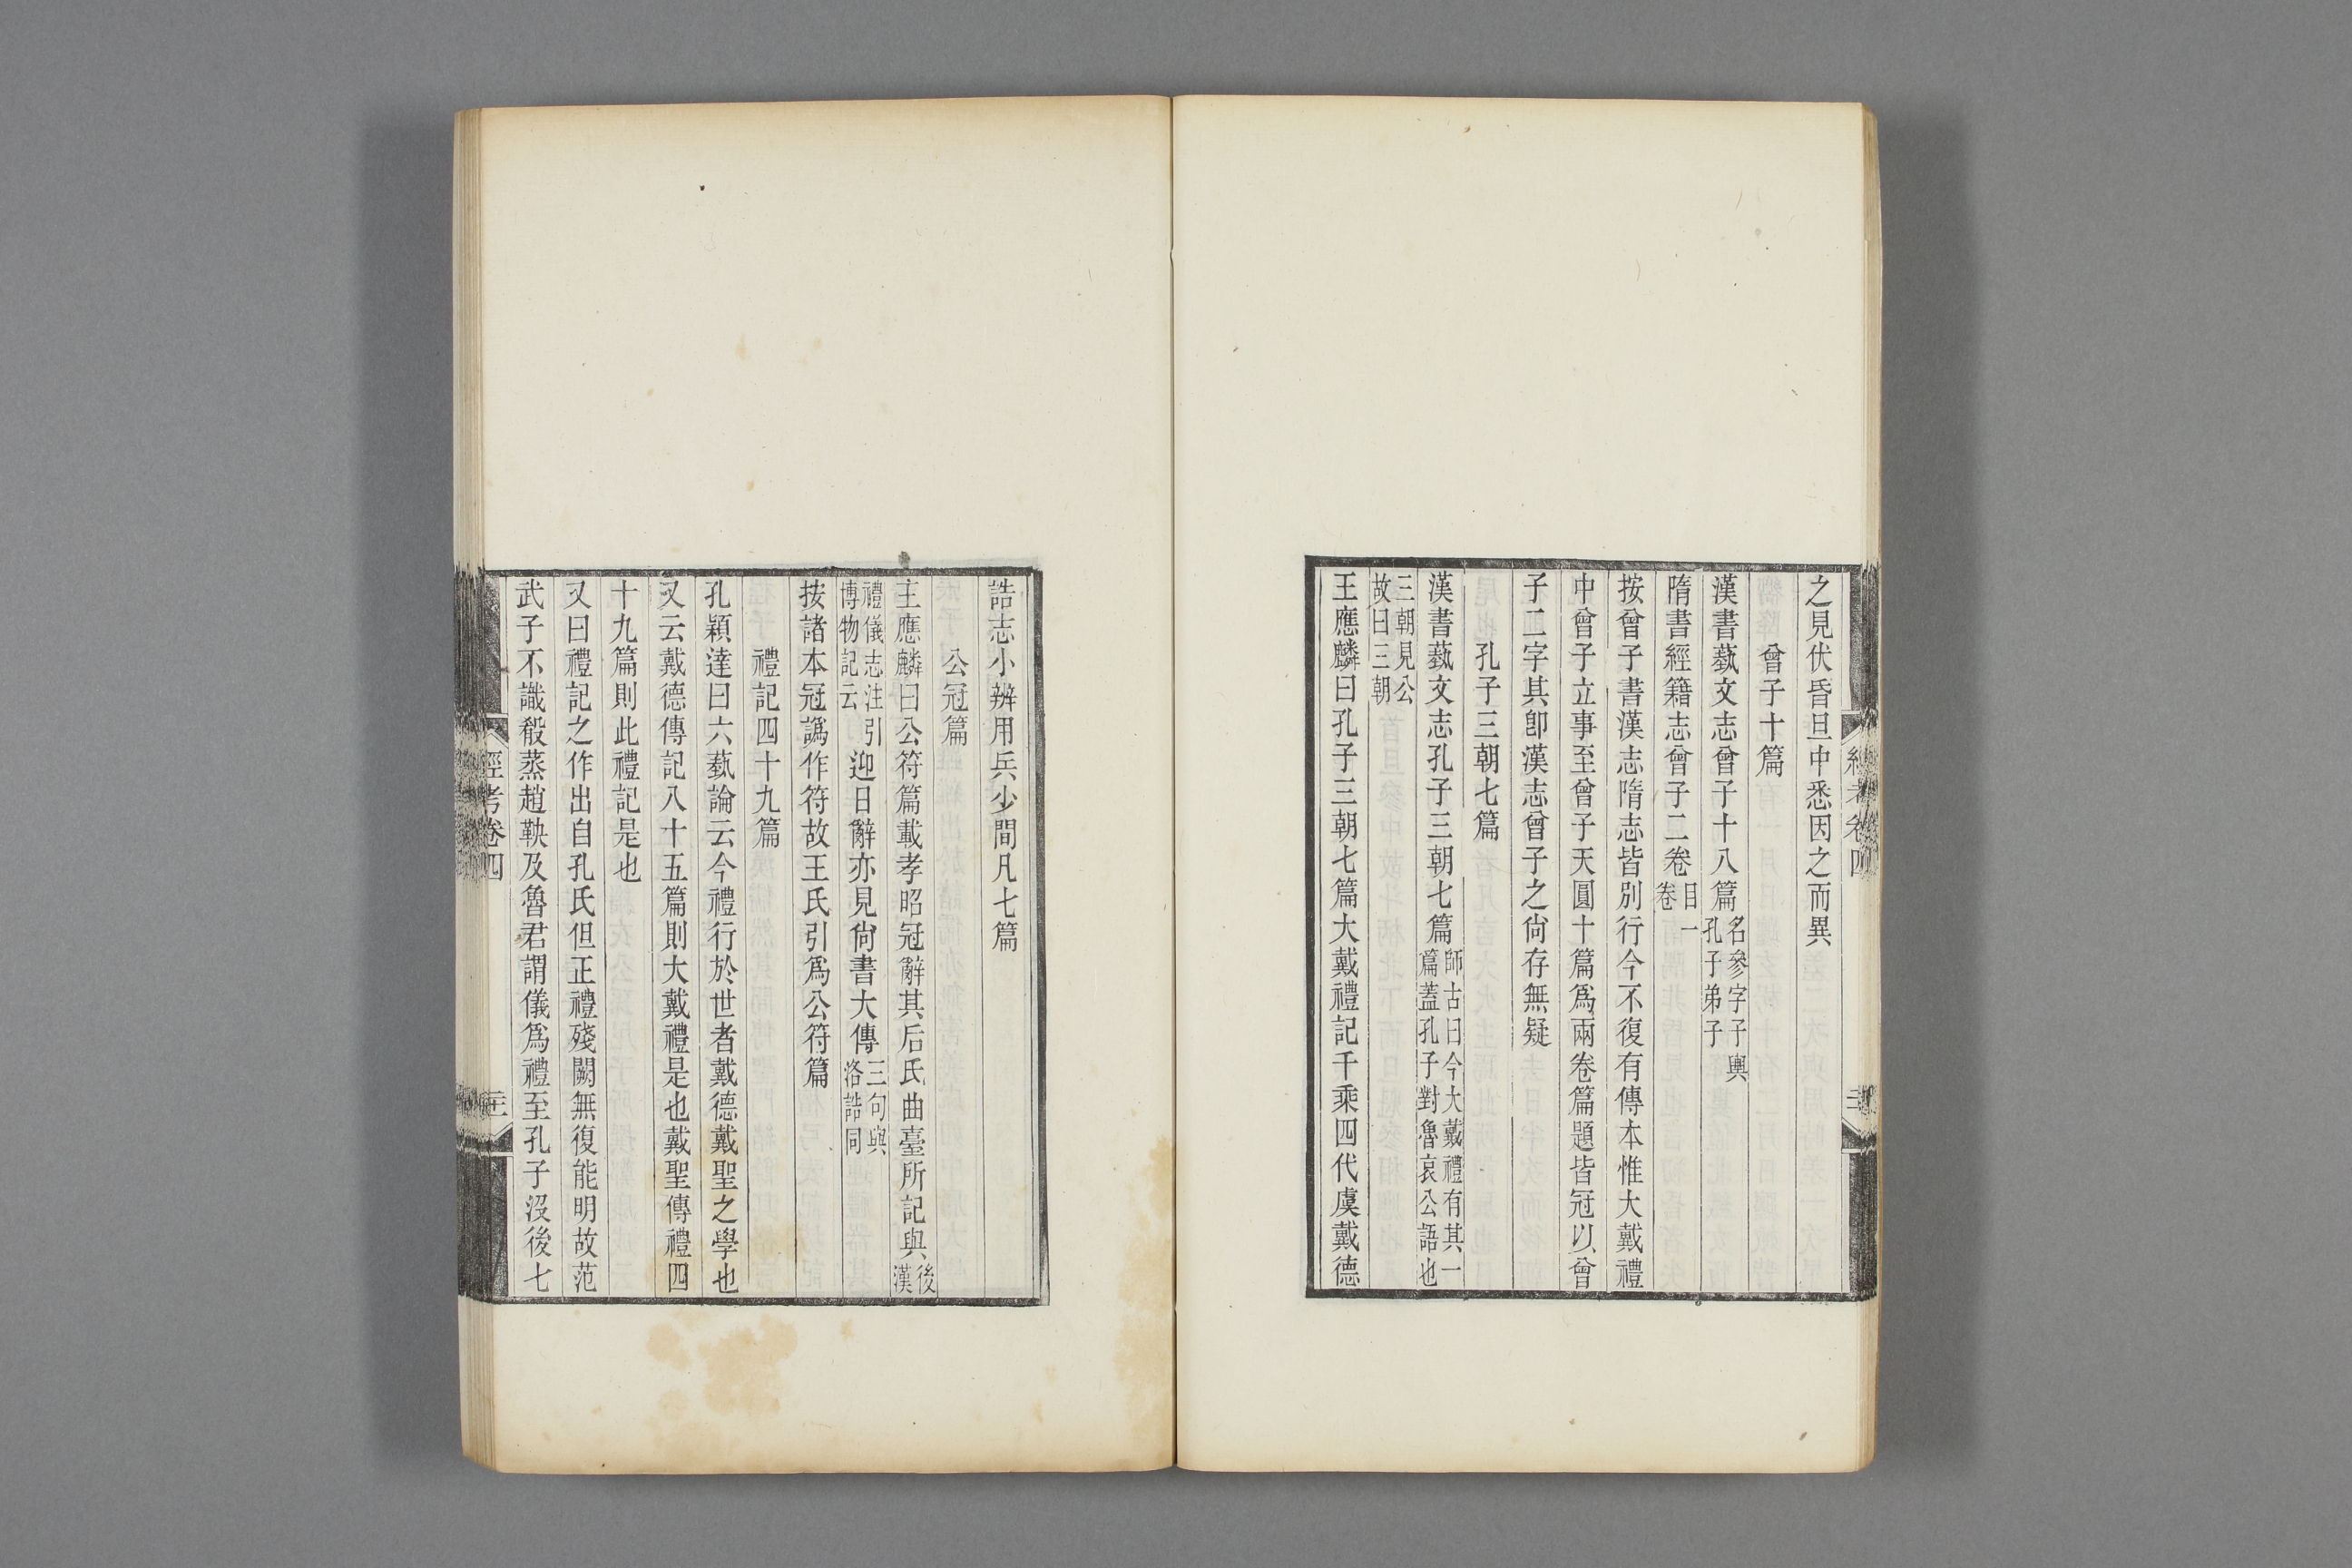 之見伏昏旦中悉因之而異
曾子十篇
漢書藝文志曾子十八篇名參字子輿孔子弟子
隋書經籍志曾子二卷目一卷
按曾子書漢志隋志皆別行今不復有傳本惟大戴禮
中曾子立事至曾子天圓十篇爲兩卷篇題皆冠以曾
子二字其卽漢志曾子之尙存無疑
孔子三朝七篇
漢書藝文志孔子三朝七篇師古曰今大戴禮有其一篇蓋孔子對魯哀公語也
三朝見公故曰三朝
王應麟曰孔子三朝七篇大戴禮記千乘四代虞戴德
誥志小辨用兵少閒凡七篇
公冠篇
王應麟曰公符篇載孝昭冠辭其后氏曲臺所記與後漢
禮儀志注引博物記云迎日辭亦見尙書大傳三句與洛誥同
按諸本冠譌作符故王氏引爲公符篇
禮記四十九篇
孔穎達曰六藝論云今禮行於世者戴德戴聖之學也
又云戴德傳記八十五篇則大戴禮是也戴聖傳禮四
十九篇則此禮記是也
又曰禮記之作出自孔氏但正禮殘闕無復能明故范
武子不識殽蒸趙鞅及魯君謂儀爲禮至孔子沒後七
經考卷四